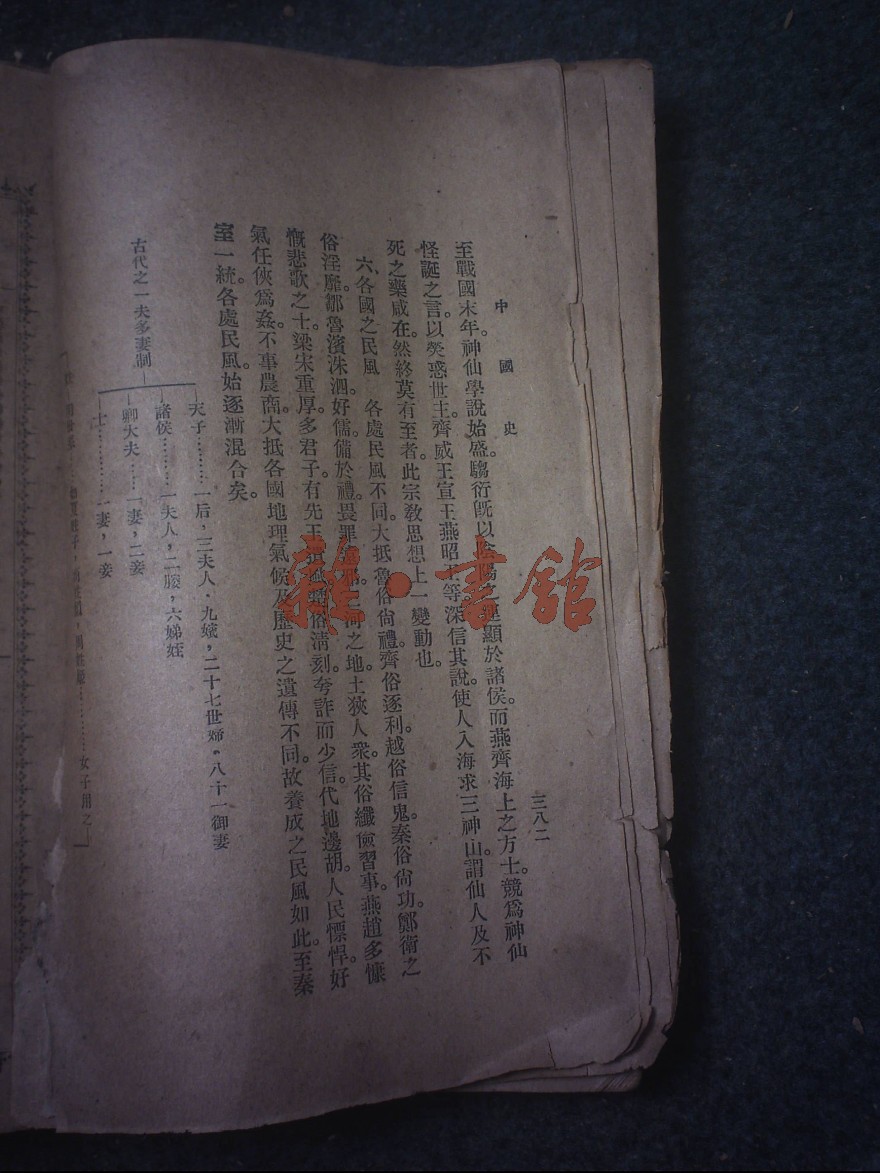 中國史
三八二
至戰國末年。神仙學說始盛。騶衍既以陰陽之運顯於諸侯。而燕齊海上之方士。競爲神仙
怪誕之言。以熒惑世主。齊威王宣王燕昭王等深信其說。使人入海求三神山。謂仙人及不
死之藥咸在。然終莫有至者。此宗教思想上一變動也。
六、各國之民風 各處民風不同。大抵魯俗尙禮。齊俗逐利。越俗信鬼。秦俗尙功。鄭衛之
俗淫靡。鄒魯濱洙泗。好儒備於禮。畏罪之地。土狹人衆。其俗纖儉習事。燕趙多慷
慨悲歌之士。梁宋重厚。多君子。有先王俗清刻。夸詐而少信。代地邊胡。人民慓悍。好
氣任俠爲姦。不事農商。大抵各國地理氣候及歷史之遺傳不同。故養成之民風如此。至秦
室一統。各處民風。始逐漸混合矣。
古代之一夫多妻制
天子………一后，三夫人，九嬪，二十七世婦，八十一御妻
諸侯………一夫人，二媵，六娣姪
卿大夫……一妻，二妾
士…………一妻，一妾
女子用之
雜·書館